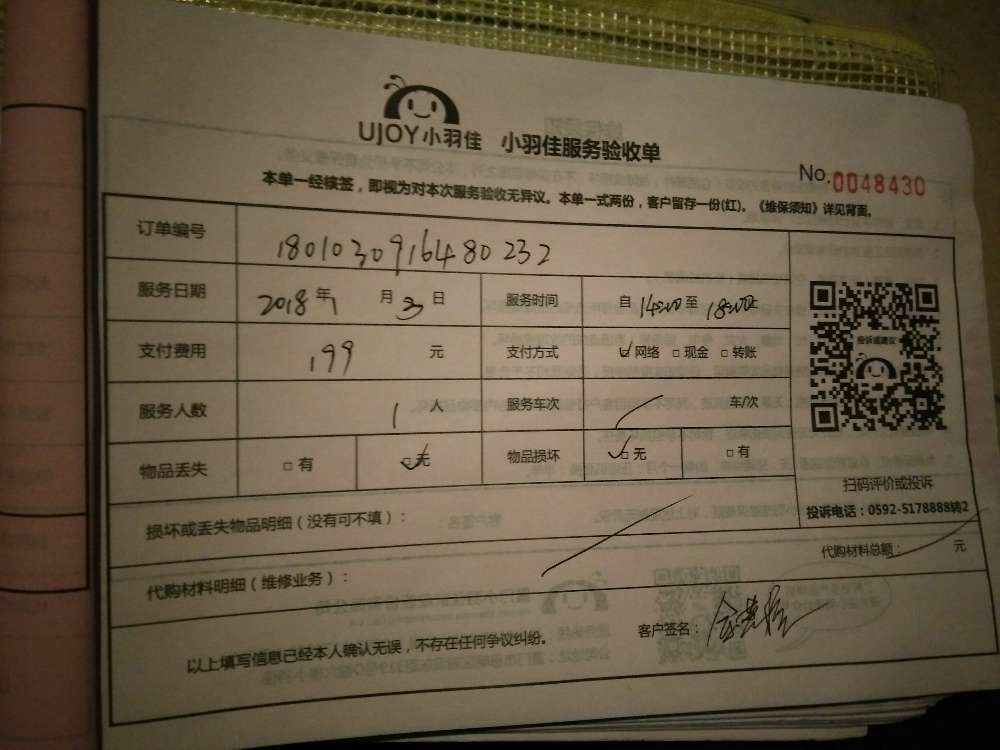 UJOY小羽佳 小羽佳服务验收单
No.0048430
本单一经核签，即视为对本次服务验收无异议。本单一式两份，客户留存一份(红)。《维保须知》详见背面。
订单编号 1801030916480232
服务日期 2018年1月3日 服务时间 自14:00至18:00止
支付费用 199元 支付方式 ☑网络 □现金 □转账
投诉或建议
服务人数 1人 服务车次 车/次
物品丢失 □有 ☑无 物品损坏 ☑无 □有
扫码评价或投诉
损坏或丢失物品明细（没有可不填）：
投诉电话：0592-5178888转2
代购材料总额： 元
代购材料明细（维修业务）：
客户签名：
以上填写信息已经本人确认无误，不存在任何争议纠纷。